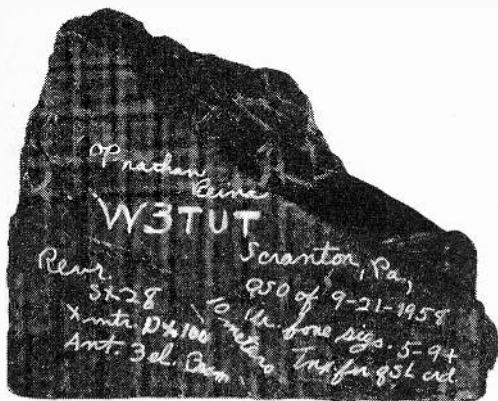 OP nathan
Beina
W3TUT
Scranton, Pa,
Revr.
SX28
Xmtr. DX100
Ant. 3 el. Beam
QSO of 9-21-1958
10 meters
Ur. fone sigs. 5-9+
Tnx. for QSL crd